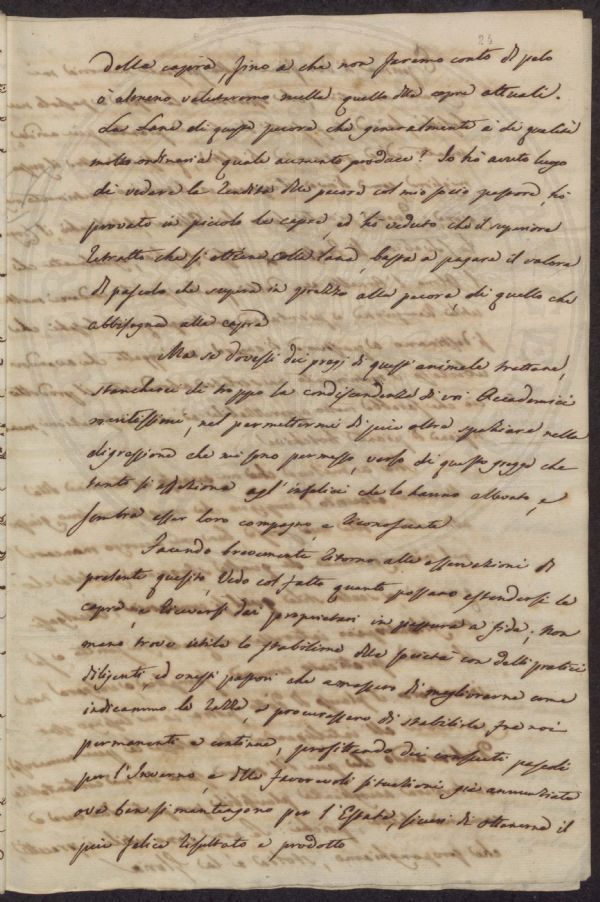 24
della capra, fino a che non faremo conto di pelo
o almeno valuteremo nulla quello delle capre attuali.
La Lana di queste pecore che generalmente è di qualità
molto ordinaria quale aumento produce? Io hò avuto luogo
di vedere la rendita delle pecore col mio socio pastore, hò
provato in piccolo le capre, ed hò veduto che il superiore
retratto che si ottiene colla lana, basta a pagare il valore
di pascolo che supera in prezzo alla pecora, di quello che
abbisogna alla capra
Ma se dovessi dei pregi di questi animale trattare,
stancherei di troppo la condiscendenza di voi Accademici
meritissimi, nel permettermi di più oltre spaziare nella
digressione che mi sono permesso, verso di questo gregge che
tanto si affeziona agl'infelici che lo hanno allevato, e
sembra esser loro compagno, e riconoscente
Facendo brevemente ritorno alle osservazioni di
presente quesito, Vedo col fatto quanto possano estendersi le
capre, e riceversi dai proprietari in pastura a fida; Non
meno trovo utile lo stabilime delle società con delli pratici
diligenti, ed onesti pastori che amassero di megliorarne come
indicammo le razze, e procurassero di stabilirle fra noi
permanenti e continue, profittando dei pascoli
per l'Inverno, e delle favorevoli situazioni già annunziate
ove ben si mantengono per l'Estate, sicuri di ottenerne il
più felice risultato e prodotto